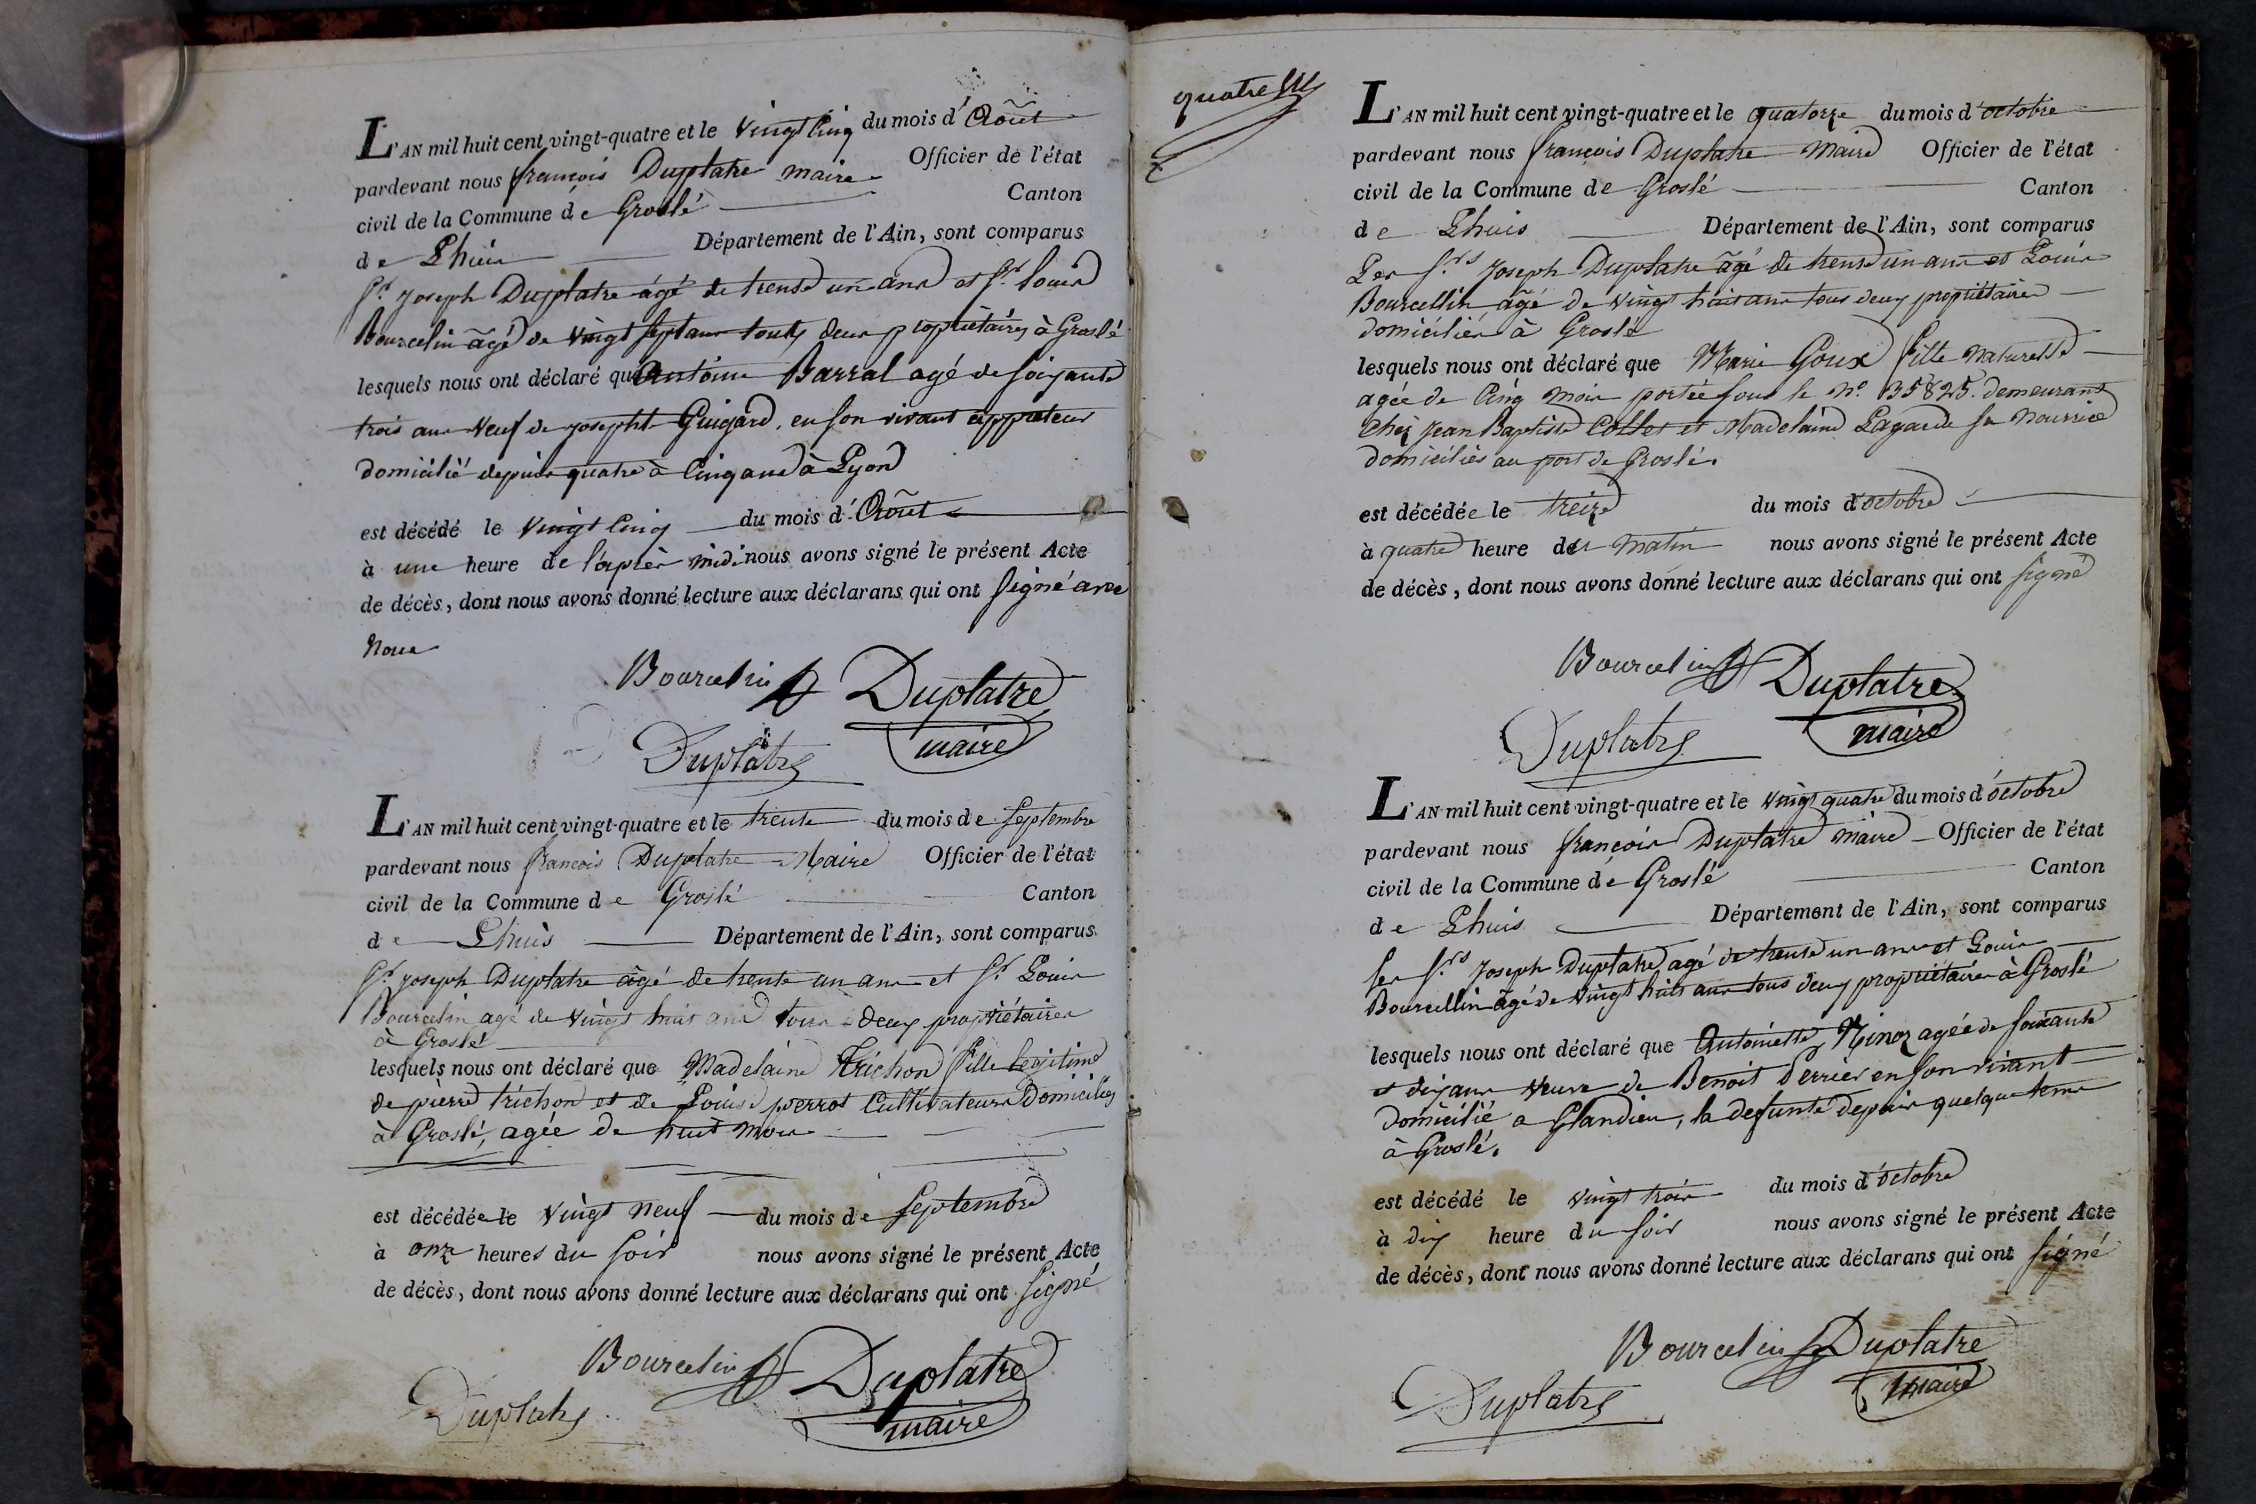 L'AN mil huit cent vingt-quatre et le vingt Cinq du mois d'Août
pardevant nous françois Duplatre maire Officier de l'état
civil de la Commune de Groslé Canton
de Lhuis Département de l'Ain, sont comparus
Sr. Joseph Duplatre âgé de trente un ans et Sr. Louis
Bourcelin âgé de vingt sept ans touts deux propriétaires à Groslé
lesquels nous ont déclaré que Antoine Barral agé de soixante
trois ans veuf de Josephte Guigard, en son vivant appreteur
domicilié depuis quatre à Cinq ans à Lyon
est décédé le vingt Cinq du mois d'Août
à une heure de l'après midi nous avons signé le présent Acte
de décès, dont nous avons donné lecture aux déclarans qui ont signé avec
nous
Bourcelin Duplatre
maire
Duplatre
L'AN mil huit cent vingt-quatre et le trente du mois de Septembre
pardevant nous francois Duplatre Maire Officier de l'état
civil de la Commune de Groslé Canton
de Lhuis Département de l'Ain, sont comparus
Sr. Joseph Duplatre âgé de trente un ans et Sr. Louis
Bourcelin agé de vingt huit ans tous deux propriétaires
à Groslé
lesquels nous ont déclaré que Madelaine Trichon fille legitime
de pierre trichon et de Louise perrot Cultivateurs Domiciliés
à Groslé, agée de huit mois
est décédée le vingt neuf du mois de Septembre
à onze heures du soir nous avons signé le présent Acte
de décès, dont nous avons donné lecture aux déclarans qui ont signé
Bourcelin Duplatre
maire
Duplatre
quatre
L'AN mil huit cent vingt-quatre et le quatorze du mois d'octobre
pardevant nous françois Duplatre Maire Officier de l'état
civil de la Commune de Groslé Canton
de Lhuis Département de l'Ain, sont comparus
Les Srs Joseph Duplatre âgé de trente un ans et Louis
Bourcellin, âgé de vingt huit ans tous deux propriétaires
domiciliés à Groslé
lesquels nous ont déclaré que Marie Goux fille naturelle
agée de Cinq mois portée sous le No. 35825. demeurant
chez Jean Baptiste Collet et Madelaine Lagarde sa nourrice
domiciliés au port de Groslé.
est décédée le treize du mois d'octobre
à quatre heure du matin nous avons signé le présent Acte
de décès, dont nous avons donné lecture aux déclarans qui ont signé
Bourcelin Duplatre
maire
Duplatre
L'AN mil huit cent vingt-quatre et le vingt quatre du mois d'octobre
pardevant nous françois Duplatre maire Officier de l'état
civil de la Commune de Groslé Canton
de Lhuis Département de l'Ain, sont comparus
les Srs Joseph Duplatre agé de trente un ans et Louis
Bourcellin âgé de vingt huit ans tous deux propriétaires à Groslé
lesquels nous ont déclaré que Antoinette Ninoz agée de soixante
et dix ans veuve de Benoit Derrier en son vivant
domicilié a Glandieu, la defunte depuis quelque tems
à Groslé.
est décédé le vingt trois du mois d'octobre
à dix heure du soir nous avons signé le présent Acte
de décès, dont nous avons donné lecture aux déclarans qui ont signé
Bourcelin Duplatre
maire
Duplatre